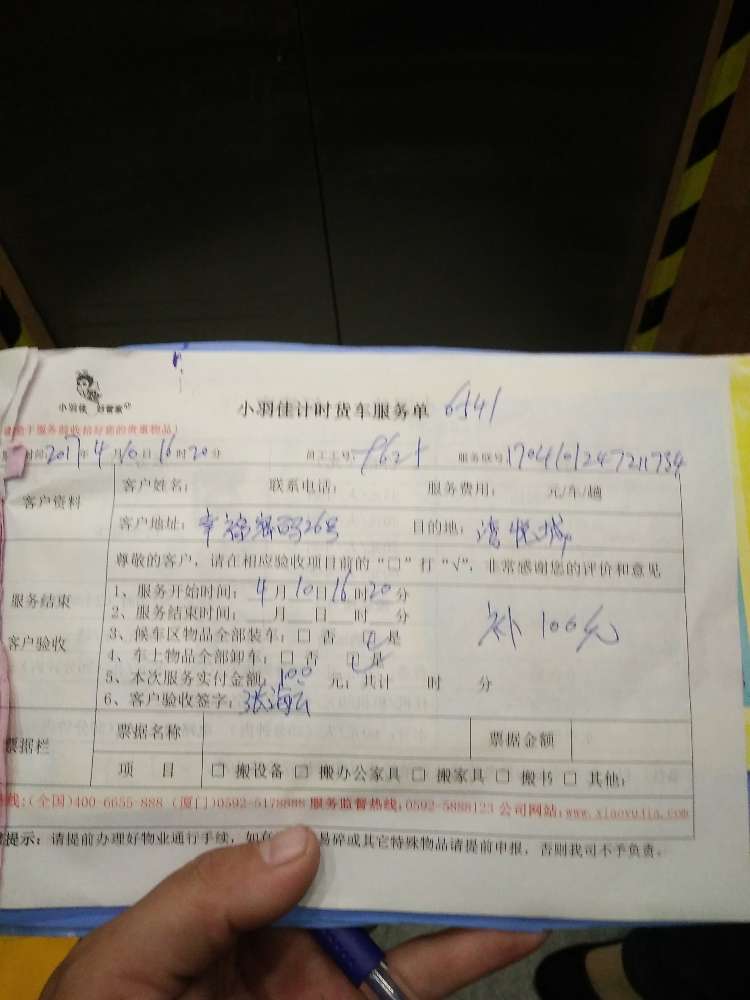 小羽佳 好管家
小羽佳计时货车服务单 6541
时间2017年4月10日16时20分 员工工号: 服务账号:
客户资料
客户姓名: 联系电话: 服务费用: 元/车/趟
客户地址: 26号 目的地: 湾悦城
尊敬的客户,请在相应验收项目前的“□”打“√”,非常感谢您的评价和意见
服务结束
客户验收
1、服务开始时间:4月10日16时20分
2、服务结束时间:__月__日__时__分
补 100元
3、候车区物品全部装车:□ 否 ☑ 是
4、车上物品全部卸车:□ 否 ☑ 是
5、本次服务实付金额:100 元;共计 时 分
6、客户验收签字:
票据栏
票据名称 票据金额
项 目 □ 搬设备 □ 搬办公家具 □ 搬家具 □ 搬书 □ 其他:
线:(全国)400-6655-888 (厦门)0592-5178888 服务监督热线:0592-5888123 公司网站:www.xiaoyujia.com
提示:请提前办理好物业通行手续,如 易碎或其它特殊物品请提前申报,否则我司不予负责。